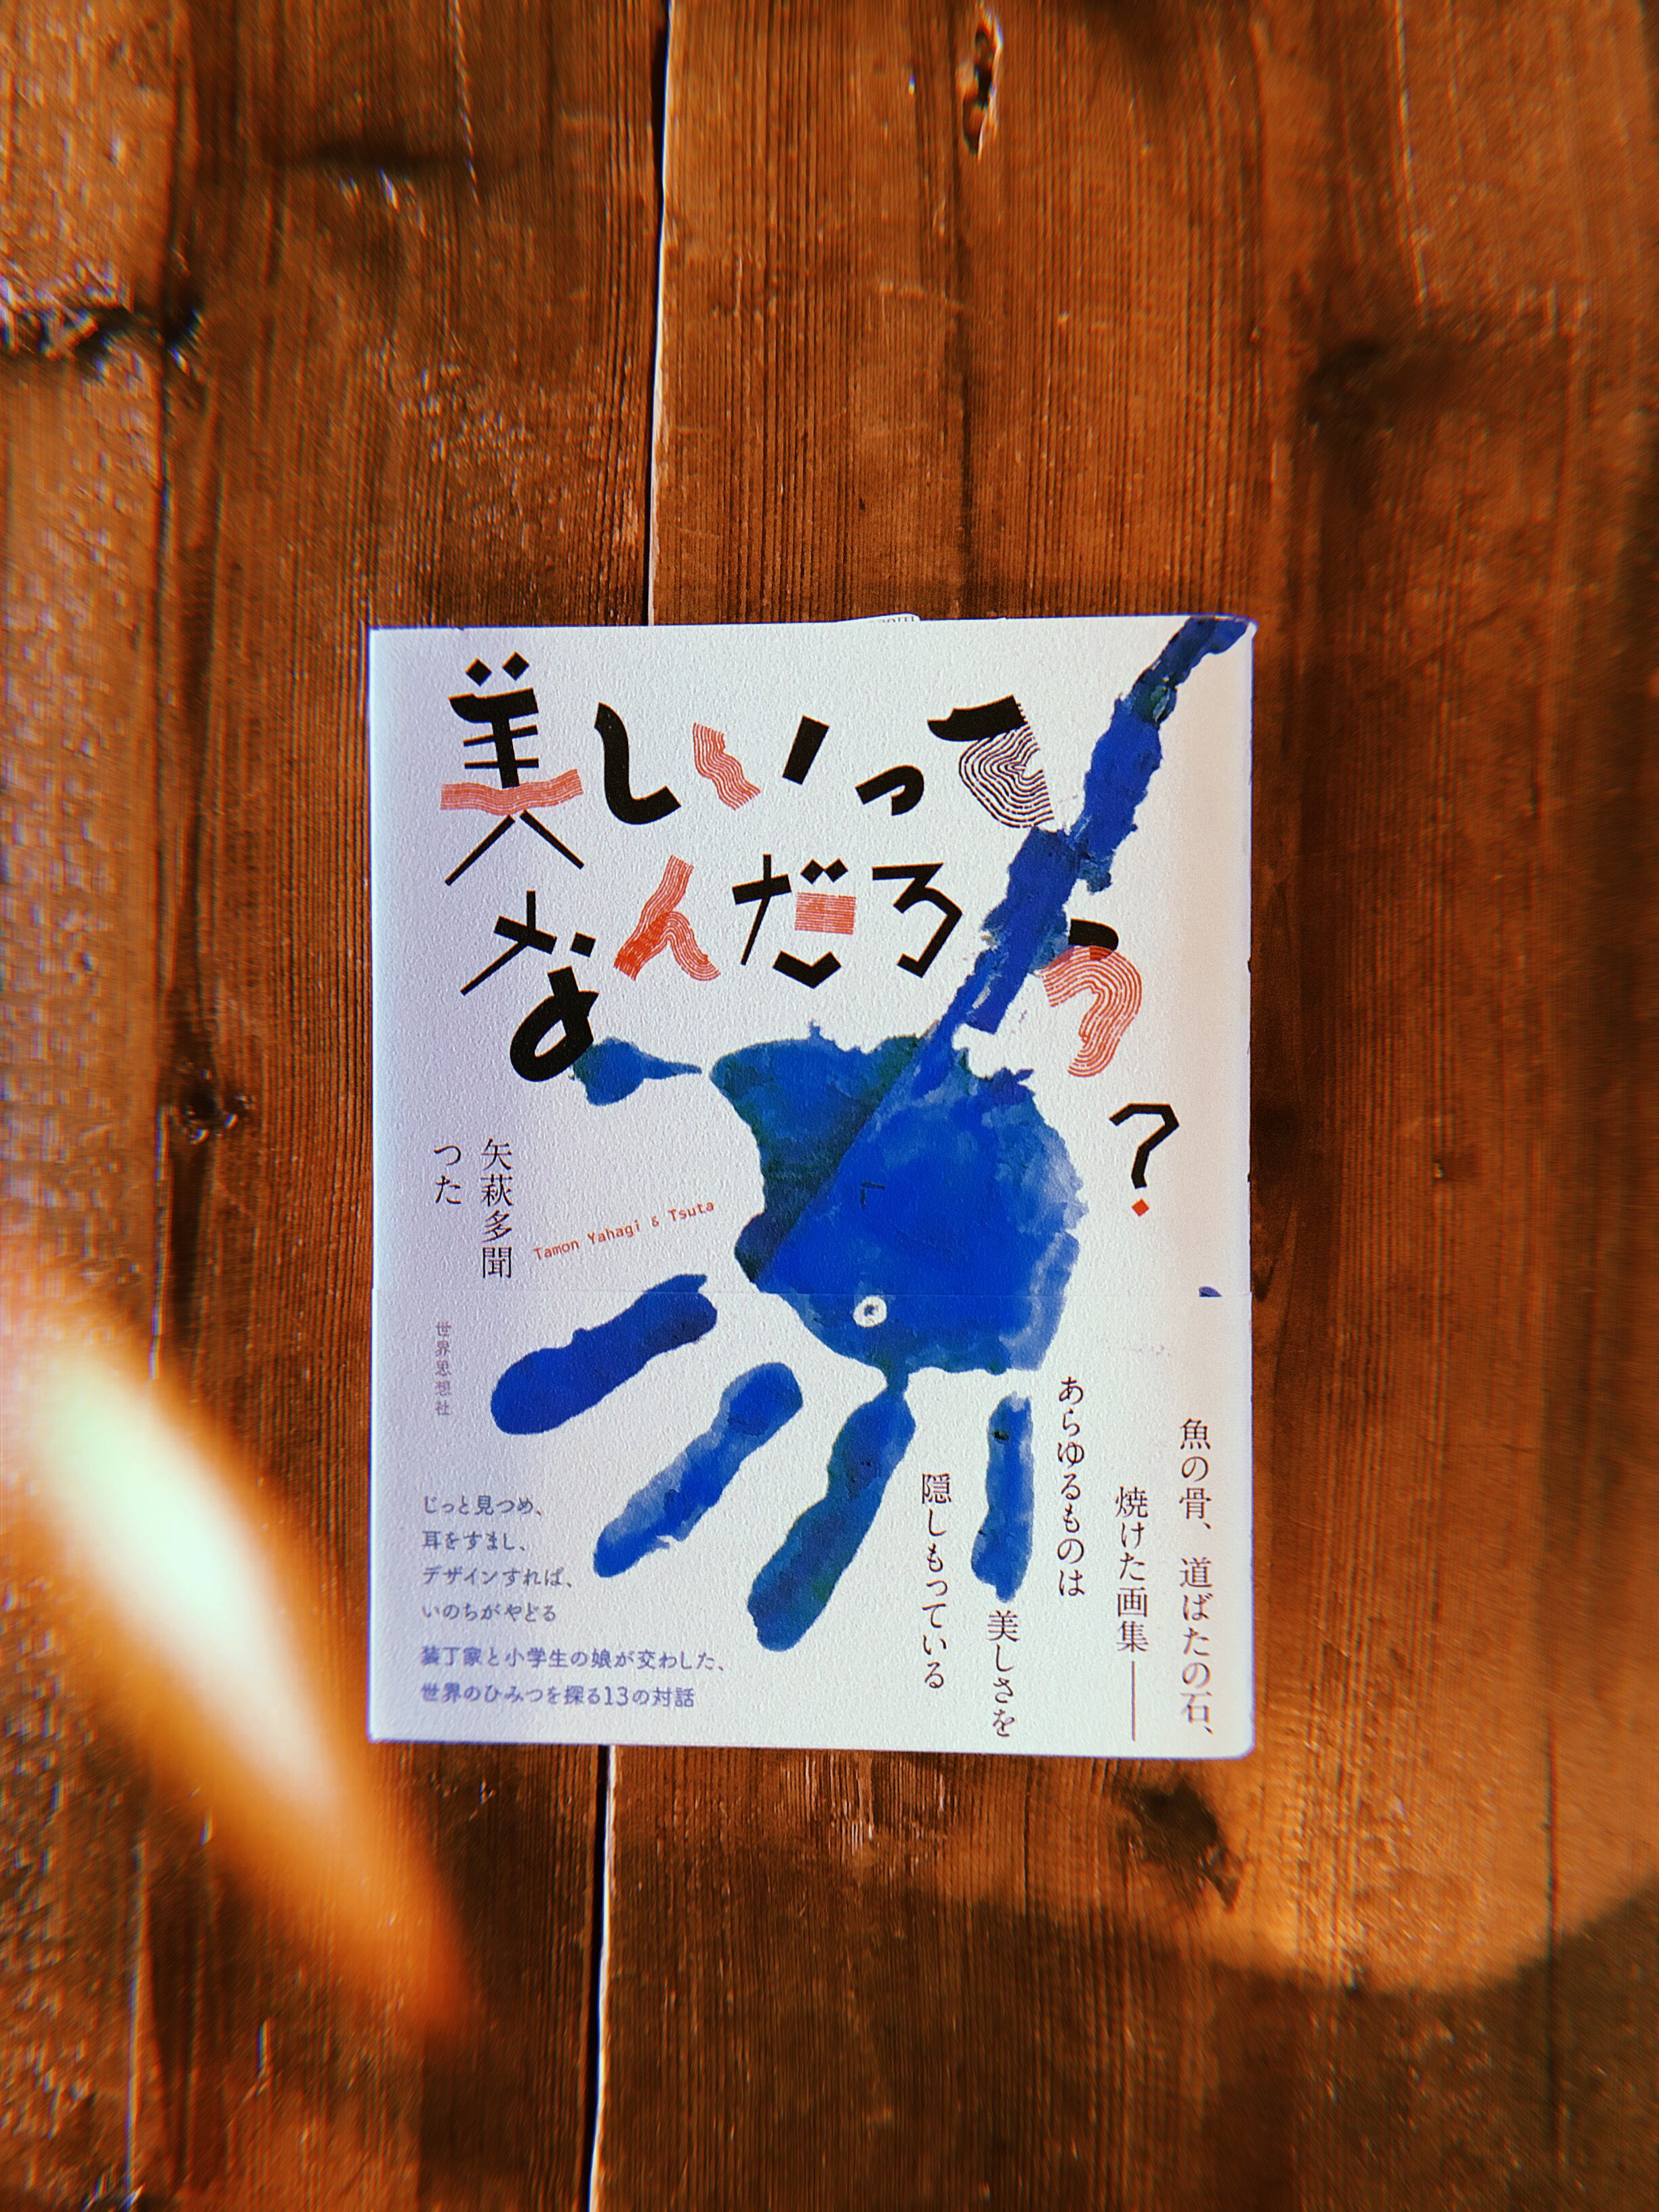 美しいって
なんだろう?
矢萩多聞
つた
Tamon Yahagi & Tsuta
世界思想社
魚の骨、道ばたの石、
焼けた画集——
あらゆるものは
美しさを
隠しもっている
じっと見つめ、
耳をすまし、
デザインすれば、
いのちがやどる
装丁家と小学生の娘が交わした、
世界のひみつを探る13の対話